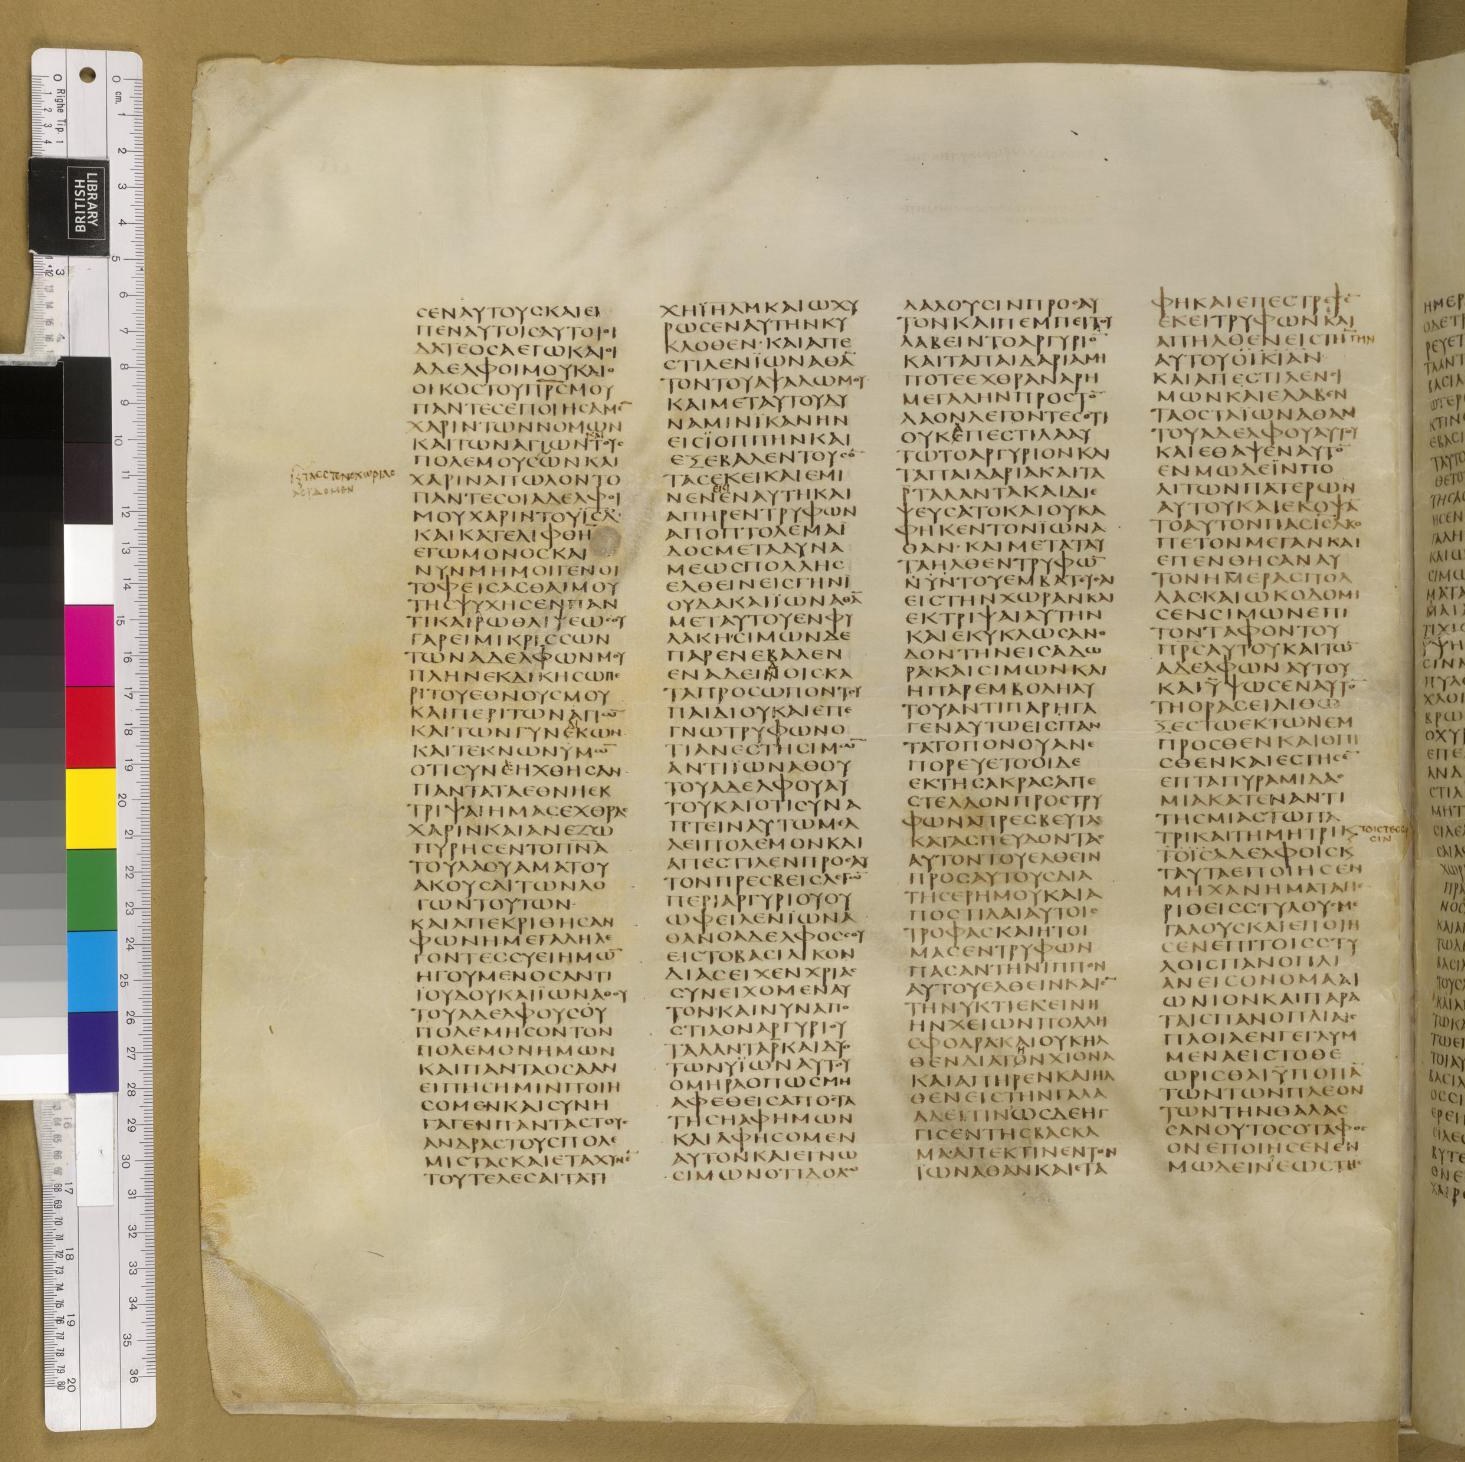 BRITISH LIBRARY
ϹΕΝΑΥΤΟΥϹΚΑΙΕΙ
ΠΕΝΑΥΤΟΙϹΑΥΤΟΙΟΙ
ΔΑΤΕΟϹΑΕΓΩΚΑΙΟΙ
ΑΔΕΛΦΟΙΜΟΥΚΑΙΟ
ΟΙΚΟϹΤΟΥΠΡ̅Ϲ̅ΜΟΥ
ΠΑΝΤΕϹΕΠΟΙΗϹΑΜΕ̅
ΧΑΡΙΝΤΩΝΝΟΜΩΝ
ΚΑΙΤΩΝΑΓΙΩΝΤΟΥϹ
ΠΟΛΕΜΟΥϹΩΝΚΑΙ
ΧΑΡΙΝΑΠΩΛΟΝΤΟ
ΠΑΝΤΕϹΟΙΑΔΕΛΦΟΙ
ΜΟΥΧΑΡΙΝΤΟΥΪϹΛ·
ΚΑΙΚΑΤΕΛΙΦΘΗ
ΕΓΩΜΟΝΟϹΚΑΙ
ΝΥΝΜΗΜΟΙΓΕΝΟΙ
ΤΟΦΕΙϹΑϹΘΑΙΜΟΥ
ΤΗϹΨΥΧΗϹΕΝΠΑΝ
ΤΙΚΑΙΡΩΘΛΙΨΕΩϹΟΥ
ΓΑΡΕΙΜΙΚΡΙϹϹΩΝ
ΤΩΝΑΔΕΛΦΩΝΜΟΥ
ΠΛΗΝΕΚΔΙΚΗϹΩΠΕ
ΡΙΤΟΥΕΘΝΟΥϹΜΟΥ
ΚΑΙΠΕΡΙΤΩΝΑΓΙΩ̅
ΚΑΙΤΩΝΓΥΝΕΚΩΝ
ΚΑΙΤΕΚΝΩΝΥΜΩ̅
ΟΤΙϹΥΝΗΧΘΗϹΑΝ
ΠΑΝΤΑΤΑΕΘΝΗΕΚ
ΤΡΙΨΑΙΗΜΑϹΕΧΘΡΑϹ
ΧΑΡΙΝΚΑΙΑΝΕΖΩ
ΠΥΡΗϹΕΝΤΟΠΝΑ
ΤΟΥΛΑΟΥΑΜΑΤΟΥ
ΑΚΟΥϹΑΙΤΩΝΛΟ
ΓΩΝΤΟΥΤΩΝ·
ΚΑΙΑΠΕΚΡΙΘΗϹΑΝ
ΦΩΝΗΜΕΓΑΛΗΛΕ
ΓΟΝΤΕϹϹΥΕΙΗΜΩ̅
ΗΓΟΥΜΕΝΟϹΑΝΤΙ
ΪΟΥΔΟΥΚΑΙΪΩΝΑΘΟΥ
ΤΟΥΑΔΕΛΦΟΥϹΟΥ
ΠΟΛΕΜΗϹΟΝΤΟΝ
ΠΟΛΕΜΟΝΗΜΩΝ
ΚΑΙΠΑΝΤΑΟϹΑΑΝ
ΕΙΠΗϹΗΜΙΝΠΟΙΗ
ϹΟΜΕΝΚΑΙϹΥΝΗ
ΓΑΓΕΝΠΑΝΤΑϹΤΟΥϹ
ΑΝΔΡΑϹΤΟΥϹΠΟΛΕ
ΜΙϹΤΑϹΚΑΙΕΤΑΧΥΝΕ
ΤΟΥΤΕΛΕϹΑΙΤΑΤΙ
ΧΗΪΗΛΜΚΑΙΩΧΥ
ΡΩϹΕΝΑΥΤΗΝΚΥ
ΚΛΟΘΕΝ·ΚΑΙΑΠΕ
ϹΤΙΛΕΝΪΩΝΑΘΑ̅
ΤΟΝΤΟΥΑΨΑΛΩΜΟΥ
ΚΑΙΜΕΤΑΥΤΟΥΔΥ
ΝΑΜΙΝΪΚΑΝΗΝ
ΕΙϹΪΟΠΠΗΝΚΑΙ
ΕΞΕΒΑΛΕΝΤΟΥϹΟ̅
ΤΑϹΕΚΕΙΚΑΙΕΜΙ
ΝΕΝΕΝΑΥΤΗΚΑΙ
ΑΠΗΡΕΝΤΡΥΦΩΝ
ΑΠΟΠΤΟΛΕΜΑΙ
ΔΟϹΜΕΤΑΔΥΝΑ
ΜΕΩϹΠΟΛΛΗϹ
ΕΛΘΕΙΝΕΙϹΓΗΝΙ
ΟΥΔΑΚΑΙΪΩΝΑΘΑ̅
ΜΕΤΑΥΤΟΥΕΝΦΥ
ΛΑΚΗϹΙΜΩΝΔΕ
ΠΑΡΕΝΕΒΑΛΕΝ
ΕΝΑΔΕΙΝΟΙϹΚΑ
ΤΑΠΡΟϹΩΠΟΝΤΟΥ
ΠΑΙΔΙΟΥΚΑΙΕΠΕ
ΓΝΩΤΡΥΦΩΝΟ
ΤΙΑΝΕϹΤΗϹΙΜΩ̅
ΑΝΤΙΪΩΝΑΘΟΥ
ΤΟΥΑΔΕΛΦΟΥΑΥ
ΤΟΥΚΑΙΟΤΙϹΥΝΑ
ΠΤΕΙΝΑΥΤΩΜΕΛ
ΛΕΙΠΟΛΕΜΟΝΚΑΙ
ΑΠΕϹΤΙΛΕΝΠΡΟϹΑΥ
ΤΟΝΠΡΕϹΒΕΙϹΛΕΓΩ̅
ΠΕΡΙΑΡΓΥΡΙΟΥΟΥ
ΩΦΕΙΛΕΝΪΩΝΑ
ΘΑΝΟΑΔΕΛΦΟϹϹΟΥ
ΕΙϹΤΟΒΑϹΙΛΙΚΟΝ
ΔΙΑϹΕΙΧΕΝΧΡΙΑϹ
ϹΥΝΕΙΧΟΜΕΝΑΥ
ΤΟΝΚΑΙΝΥΝΑΠΟ
ϹΤΙΛΟΝΑΡΓΥΡΙΟΥ
ΤΑΛΑΝΤΑΡ̅ΚΑΙΔΥΟ
ΤΩΝΥΪΩΝΑΥΤΟΥ
ΟΜΗΡΑΟΠΩϹΜΗ
ΑΦΕΘΕΙϹΑΠΟϹΤΑ
ΤΗϹΗΑΦΗΜΩΝ
ΚΑΙΑΦΗϹΟΜΕΝ
ΑΥΤΟΝΚΑΙΕΓΝΩ
ϹΙΜΩΝΟΤΙΔΟΛΩ
ΛΑΛΟΥϹΙΝΠΡΟϹΑΥ
ΤΟΝΚΑΙΠΕΜΠΕΙΤΟΥ
ΛΑΒΕΙΝΤΟΑΡΓΥΡΙΟ̅
ΚΑΙΤΑΠΑΙΔΑΡΙΑΜΗ
ΠΟΤΕΕΧΘΡΑΝΑΡΗ
ΜΕΓΑΛΗΝΠΡΟϹΤΟ̅
ΛΑΟΝΛΕΓΟΝΤΕϹΟΤΙ
ΟΥΚΕΠΕϹΤΙΛΑΑΥ
ΤΩΤΟΑΡΓΥΡΙΟΝΚΑΙ
ΤΑΠΑΙΔΑΡΙΑΚΑΙΤΑ
Ρ̅ΤΑΛΑΝΤΑΚΑΙΔΙΕ
ΨΕΥϹΑΤΟΚΑΙΟΥΚΑ
ΦΗΚΕΝΤΟΝΪΩΝΑ
ΘΑΝ·ΚΑΙΜΕΤΑΤΑΥ
ΤΑΗΛΘΕΝΤΡΥΦΩ̅
ΝΥΝΤΟΥΕΜΒΑΤΕΥΟΝ
ΕΙϹΤΗΝΧΩΡΑΝΚΑΙ
ΕΚΤΡΙΨΑΙΑΥΤΗΝ
ΚΑΙΕΚΥΚΛΩϹΑΝΟ
ΔΟΝΤΗΝΕΙϹΑΔΩ
ΡΑ·ΚΑΙϹΙΜΩΝΚΑΙ
ΗΠΑΡΕΜΒΟΛΗΑΥ
ΤΟΥΑΝΤΙΠΑΡΗΓΑ
ΓΕΝΑΥΤΩΕΙϹΠΑΝ
ΤΑΤΟΠΟΝΟΥΑΝΕ
ΠΟΡΕΥΕΤΟΟΙΔΕ
ΕΚΤΗϹΑΚΡΑϹΑΠΕ
ϹΤΕΛΛΟΝΠΡΟϹΤΡΥ
ΦΩΝΑΠΡΕϹΒΕΥΤΑϹ
ΚΑΤΑϹΠΕΥΔΟΝΤΑϹ
ΑΥΤΟΝΤΟΥΕΛΘΕΙΝ
ΠΡΟϹΑΥΤΟΥϹΔΙΑ
ΤΗϹΕΡΗΜΟΥΚΑΙΑ
ΠΟϹΤΙΛΑΙΑΥΤΟΙϹ
ΤΡΟΦΑϹΚΑΙΗΤΟΙ
ΜΑϹΕΝΤΡΥΦΩΝ
ΠΑϹΑΝΤΗΝΪΠΠΟΝ
ΑΥΤΟΥΕΛΘΕΙΝΚΑΙΕ̅
ΤΗΝΥΚΤΙΕΚΕΙΝΗ
ΗΝΧΕΙΩΝΠΟΛΛΗ
ϹΦΟΔΡΑΚΑΙΟΥΚΗΛ
ΘΕΝΔΙΑΤΟΝΧΙΟΝΑ
ΚΑΙΑΠΗΡΕΝΚΑΙΗΛ
ΘΕΝΕΙϹΤΗΝΓΑΛΑ
ΑΔΕΙΤΙΝΩϹΔΕΗΓ
ΓΙϹΕΝΤΗϹΒΑϹΚΑ
ΜΑΑΠΕΚΤΙΝΕΝΤΟΝ
ΪΩΝΑΘΑΝΚΑΙΕΤΑ
ΦΗΚΑΙΕΠΕϹΤΡΕΨΕ̅
ΕΚΕΙΤΡΥΦΩΝΚΑΙ
ΑΠΗΛΘΕΝΕΙϹΓΗ ΤΗΝ
ΑΥΤΟΥΟΙΚΙΑΝ
ΚΑΙΑΠΕϹΤΙΛΕΝϹΙ
ΜΩΝΚΑΙΕΛΑΒΕΝ
ΤΑΟϹΤΑΪΩΝΑΘΑΝ
ΤΟΥΑΔΕΛΦΟΥΑΥΤΟΥ
ΚΑΙΕΘΑΨΕΝΑΥΤΟ̅
ΕΝΜΩΔΕΪΝΠΟ
ΛΙΤΩΝΠΑΤΕΡΩΝ
ΑΥΤΟΥΚΑΙΕΚΟΨΑ̅
ΤΟΑΥΤΟΝΠΑϹΙϹΛΚΟ
ΠΕΤΟΝΜΕΓΑΝΚΑΙ
ΕΠΕΝΘΗϹΑΝΑΥ
ΤΟΝΗΜΕΡΑϹΠΟΛ
ΛΑϹΚΑΙΩΚΟΔΟΜΙ
ϹΕΝϹΙΜΩΝΕΠΙ
ΤΟΝΤΑΦΟΝΤΟΥ
ΠΡ̅Ϲ̅ΑΥΤΟΥΚΑΙΤΩ̅
ΑΔΕΛΦΩΝΑΥΤΟΥ
ΚΑΙΫΨΩϹΕΝΑΥΤΟ̅
ΤΗΟΡΑϹΕΙΛΙΘΩ
ΞΕϹΤΩΕΚΤΩΝΕΜ
ΠΡΟϹΘΕΝΚΑΙΟΠΙ
ϹΘΕΝΚΑΙΕϹΤΗϹΕ̅
ΕΠΤΑΠΥΡΑΜΙΔΑϹ
ΜΙΑΚΑΤΕΝΑΝΤΙ
ΤΗϹΜΙΑϹΤΩΠΑ
ΤΡΙΚΑΙΤΗΜΗΤΡΙΚ
ΤΟΙϹΑΔΕΛΦΟΙϹΚ
ΤΑΥΤΑΕΠΟΙΗϹΕΝ
ΜΗΧΑΝΗΜΑΤΑΠΕ
ΡΙΘΕΙϹϹΤΥΛΟΥϹΜΕ
ΓΑΛΟΥϹΚΑΙΕΠΟΙΗ
ϹΕΝΕΠΙΤΟΙϹϹΤΥ
ΛΟΙϹΠΑΝΟΠΛΙ
ΑΝΕΙϹΟΝΟΜΑΑΙ
ΩΝΙΟΝΚΑΙΠΑΡΑ
ΤΑΙϹΠΑΝΟΠΛΙΑΙϹ
ΠΛΟΙΑΕΝΓΕΓΛΥΜ
ΜΕΝΑΕΙϹΤΟΘΕ
ΩΡΙϹΘΑΙΫΠΟΠΑ̅
ΤΩΝΤΩΝΠΛΕΟΝ
ΤΩΝΤΗΝΘΑΛΑϹ
ϹΑΝΟΥΤΟϹΟΤΑΦΟϹ
ΟΝΕΠΟΙΗϹΕΝΕΝ
ΜΩΔΕΙΝΕΩϹΤΗϹ